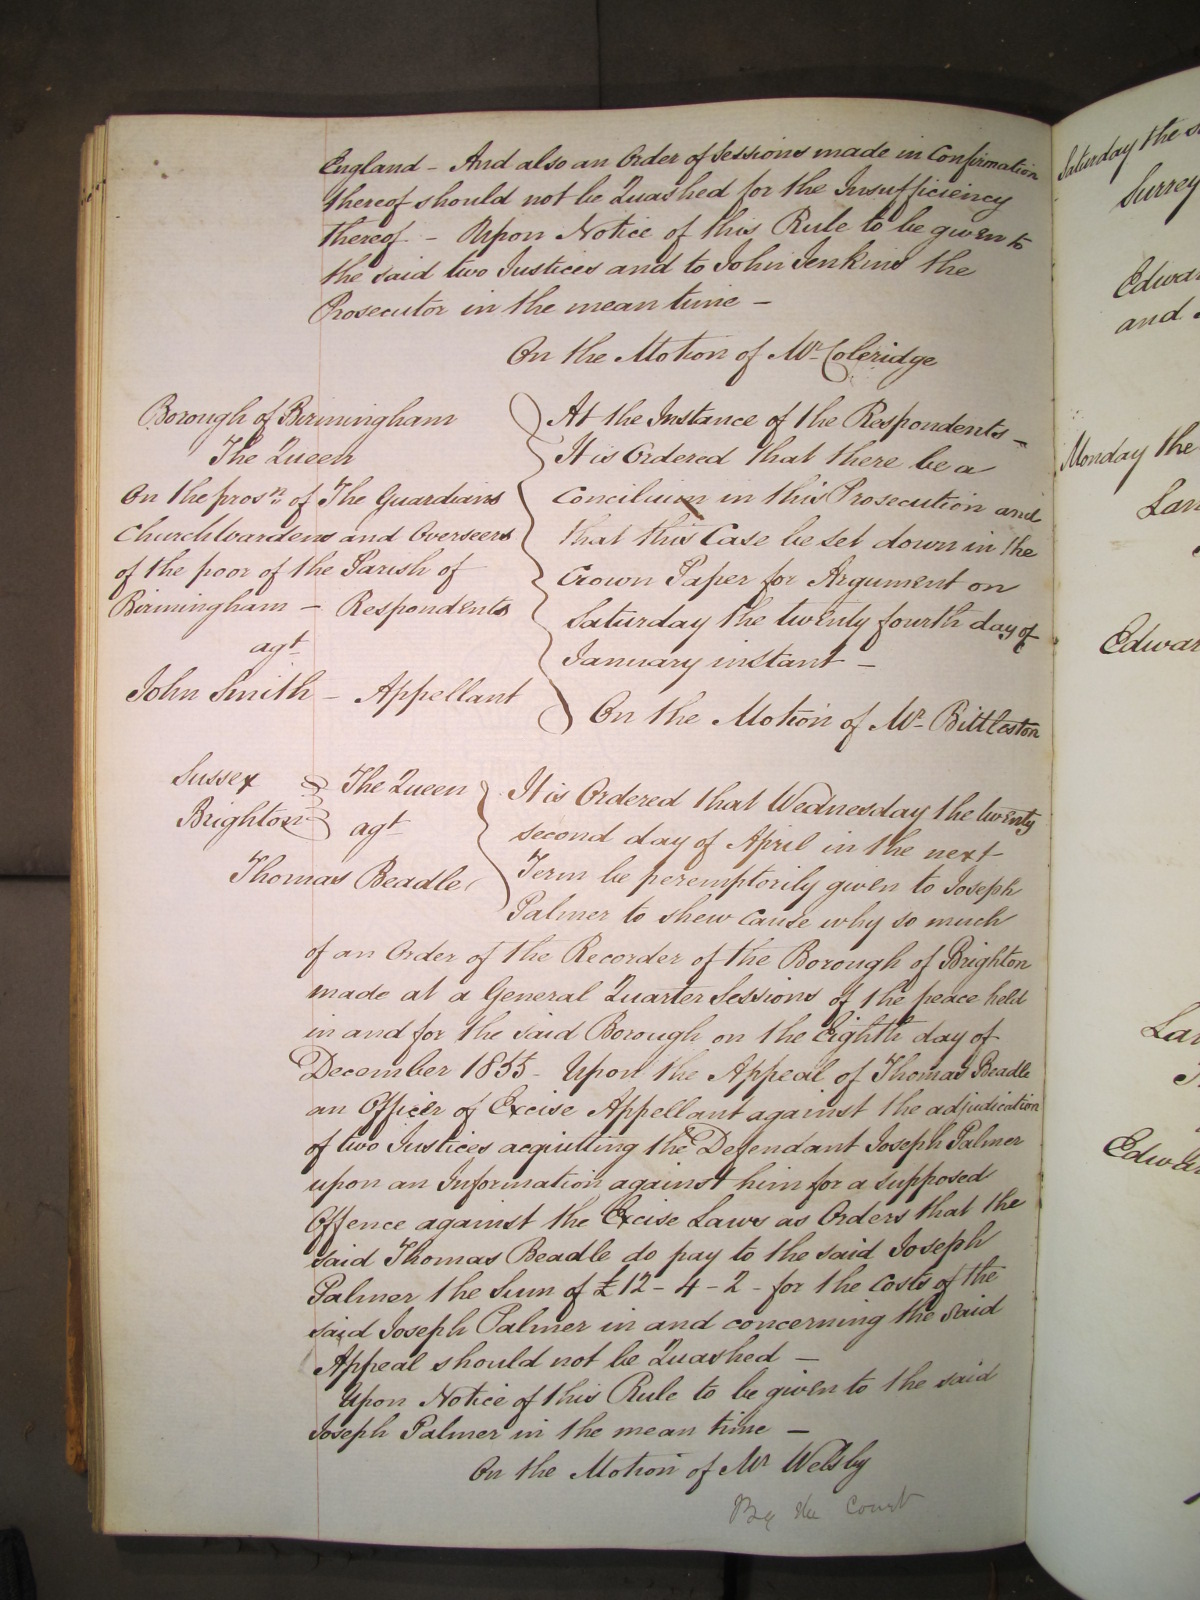 England - And also an Order of Sessions made in Confirmation
thereof should not be Quashed for the Insufficiency
thereof - Upon Notice of this Rule to be given to
the said two Justices and to John Jenkins the
Prosecutor in the mean time -
On the Motion of Mr Coleridge
Borough of Birmingham
The Queen
On the prosn. of The Guardians
Churchwardens and Overseers
of the poor of the Parish of
Birmingham - Respondents
agt
John Smith - Appellant
At the Instance of the Respondents -
It is Ordered that there be a
Concilium in this Prosecution and
that this Case be set down in the
Crown Paper for Argument on
Saturday the twenty fourth day of
January instant -
On the Motion of Mr Bittleston
Sussex
Brighton
The Queen
agt
Thomas Beadle
It is Ordered that Wednesday the twenty
second day of April in the next
Term be peremptorily given to Joseph
Palmer to shew cause why so much
of an Order of the Recorder of the Borough of Brighton
made at a General Quarter Sessions of the peace held
in and for the said Borough on the Eighth day of
December 1855 - Upon the Appeal of Thomas Beadle
an Officer of Excise Appellant against the adjudication
of two Justices acquitting the Defendant Joseph Palmer
upon an Information against him for a supposed
Offence against the Excise Laws as Orders that the
said Thomas Beadle do pay to the said Joseph
Palmer the Sum of £12 - 4 - 2 - for the Costs of the
said Joseph Palmer in and concerning the said
Appeal should not be Quashed -
Upon Notice of this Rule to be given to the said
Joseph Palmer in the mean time -
On the Motion of Mr Welsby
By the Court
Saturday the
Surrey
and
Monday the